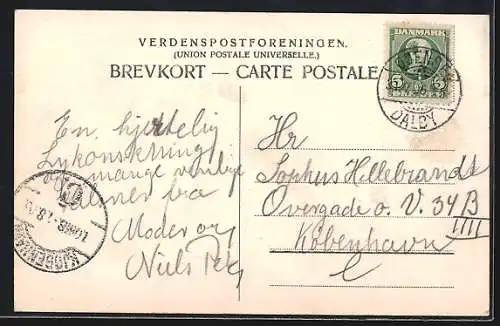 VERDENSPOSTFORENINGEN.
(UNION POSTALE UNIVERSELLE.)
BREVKORT — CARTE POSTALE
DANMARK
5 5
DALBY
KJØBENHAVN
En hjertelig
Lykønskning
mange venlige
Hilsener fra
Moder og
Niels
Hr
Sophus Hillebrandt
Overgade o. V. 34 B
IIII
København
C